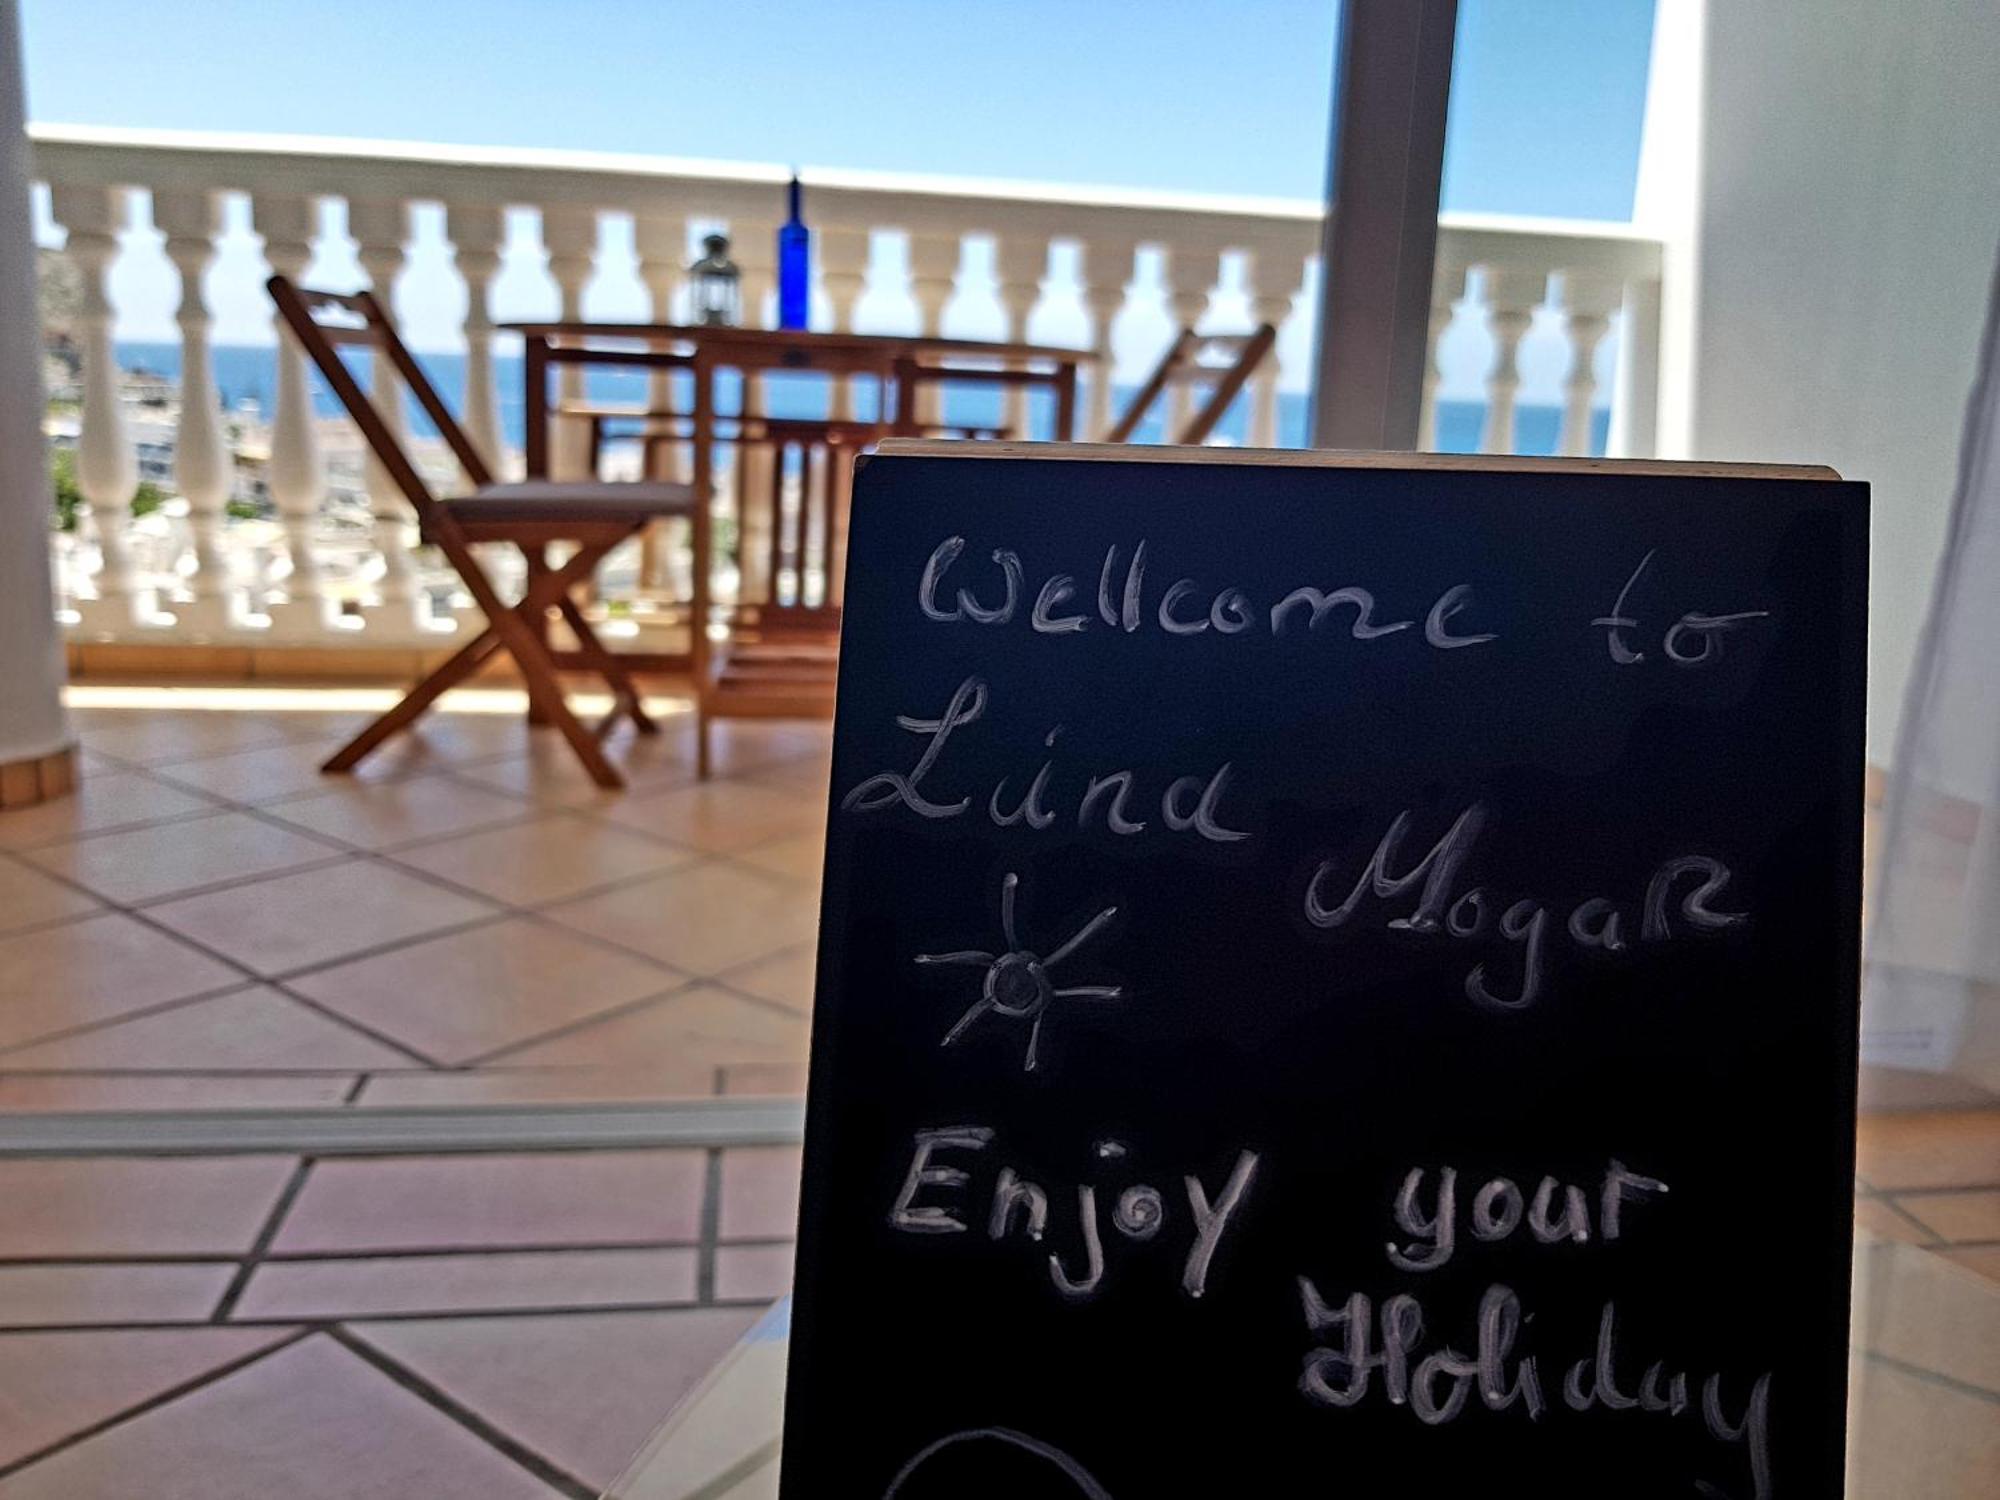 Wellcome to
Lina
MogaR
Enjoy your
Holiday